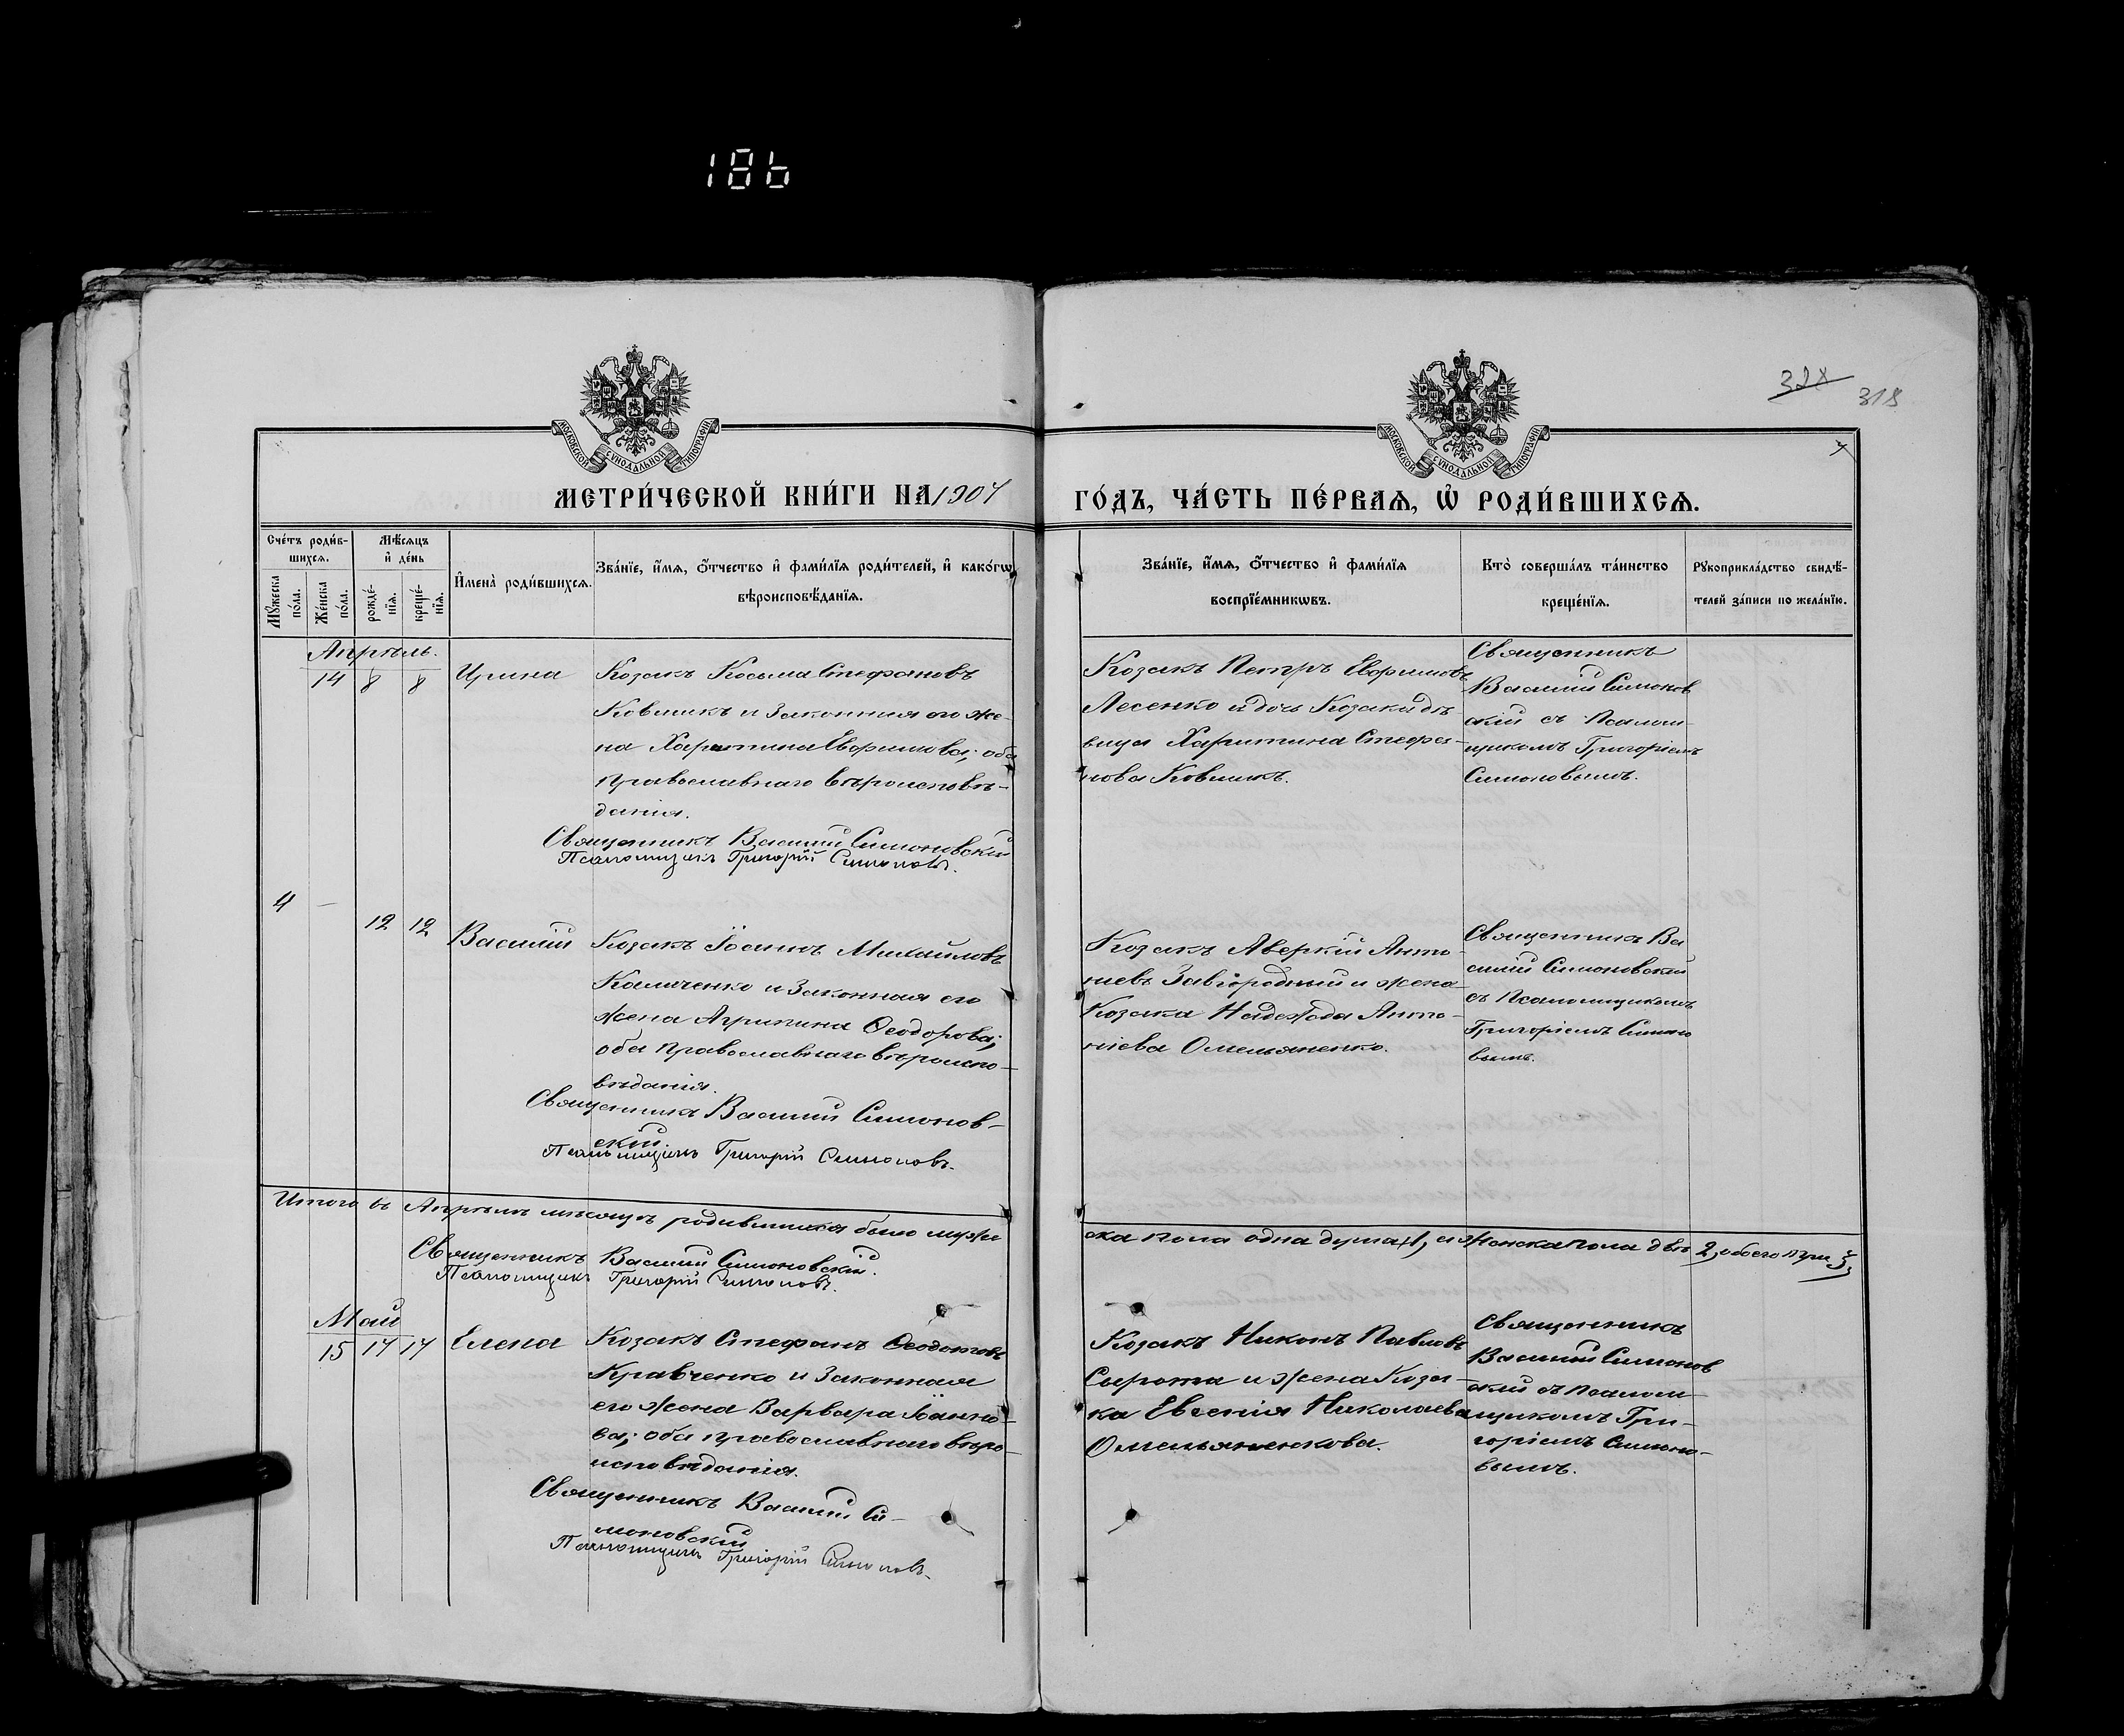 186
328
318
МОСКОВСКОЙ СѴНОДАЛЬНОЙ ТИПОГРАФІИ
МОСКОВСКОЙ СѴНОДАЛЬНОЙ ТИПОГРАФІИ
МЕТРИ́ЧЕСКОЙ КНИ́ГИ НА 1904
ГО́ДЪ, ЧА́СТЬ ПЕ́РВАѦ, Ѡ҆ РОДИ́ВШИХСѦ.
Сче́тъ роди́в-
шихсѧ.
Мꙋ́жеска по́ла.
Же́нска по́ла.
Мѣ́сѧцъ
и҆ де́нь
рожде́-
нїѧ.
креще́-
нїѧ.
И҆мена̀ роди́вшихсѧ.
Зва́нїе, и҆́мѧ, ѻ҆́тчество и҆ фамѝлїѧ роди́телей, и҆ како́гѡ
вѣроисповѣ́данїѧ.
Зва́нїе, и҆́мѧ, ѻ҆́тчество и҆ фамѝлїѧ
воспрїе́мникѡвъ.
Кто̀ соверша́лъ та́инство
креще́нїѧ.
Рꙋкоприкла́дство свидѣ́-
телей за́писи по жела́нїю.
Апрѣль.
14 8 8 Ирина
Козакъ Косьма Стефановъ
Ковшикъ и законная его же-
на Харитина Евфимова; оба
православнаго вѣроисповѣ-
данія.
Священникъ Василій Симоновскій
Псаломщикъ Григорій Симоновъ.
Козакъ Петръ Евфимовъ
Лесенко и дочь Козака дѣ-
вица Харитина Стефа-
нова Ковшикъ.
Священникъ
Василій Симонов
скій съ Псалом-
щикомъ Григоріемъ
Симоновымъ.
4 – 12 12 Василій
Козакъ Іоаннъ Михайловъ
Каличенко и законная его
жена Агрипина Ѳеодорова;
оба православнаго вѣроиспо-
вѣданія.
Священникъ Василій Симонов-
скій
Псаломщикъ Григорій Симоновъ.
Козакъ Аверкій Анто-
ніевъ Завгородный и жена
Козака Надежда Анто-
ніева Омельяненко.
Священникъ Ва
силій Симоновскій
съ Псаломщикомъ
Григоріемъ Симоно
вымъ.
Итого въ Апрѣлѣ мѣсяцѣ родившихся было муже
ска пола одна душа 1, а женска пола двѣ 2, обоего три 3.
Священникъ Василій Симоновскій.
Псаломщикъ Григорій Симоновъ.
Май
15 14 14 Елена
Козакъ Стефанъ Ѳеодотовъ
Кравченко и законная
его жена Варвара Іоанно-
ва; оба православнаго вѣро-
исповѣданія.
Священникъ Василій Си-
моновскій
Псаломщикъ Григорій Симоновъ.
Козакъ Никонъ Павловъ
Сырота и жена Коза-
ка Евгенія Николаева
Омельяненкова.
Священникъ
Василій Симонов
скій съ Псалом-
щикомъ Гри-
горіемъ Симоно-
вымъ.